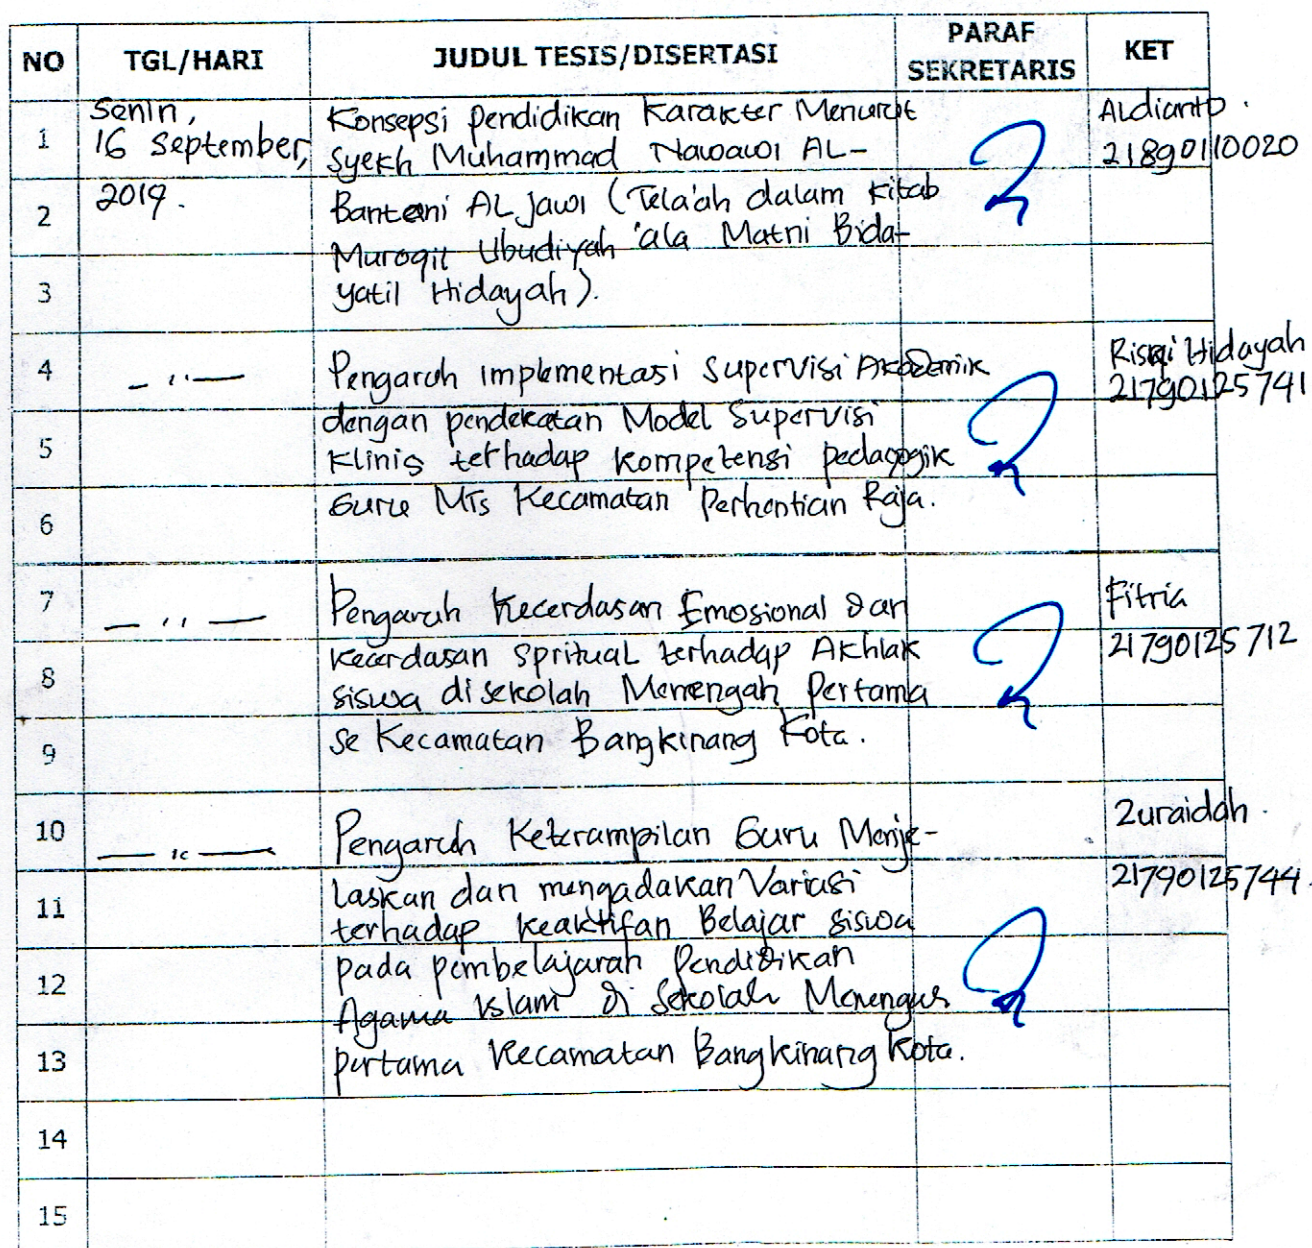 NO TGL/HARI JUDUL TESIS/DISERTASI PARAF SEKRETARIS KET
1 Senin, Konsepsi Pendidikan Karakter Menurut Aldianto.
16 September, Syekh Muhammad Nawawi AL- 21890110020
2 2019. Bantani AL Jawi (Tela'ah dalam Kitab
Muroqil Ubudiyah 'ala Matni Bida-
3 yatil Hidayah).
4 — '' — Pengaruh implementasi Supervisi Akademik Risqi Hidayah
21790125741
5 dengan pendekatan Model Supervisi
Klinis terhadap kompetensi pedagogik
6 Guru MTs Kecamatan Perhentian Raja.
7 — '' — Pengaruh Kecerdasan Emosional dan Fitria
8 kecerdasan spritual terhadap Akhlak 21790125712
siswa disekolah Menengah Pertama
9 se Kecamatan Bangkinang Kota.
10 — '' — Pengaruh Keterampilan Guru Menje- Zuraidah.
11 laskan dan mengadakan Variasi 21790125744.
terhadap keaktifan Belajar siswa
12 pada pembelajaran Pendidikan
Agama Islam di Sekolah Menengah
13 pertama Kecamatan Bangkinang Kota.
14
15